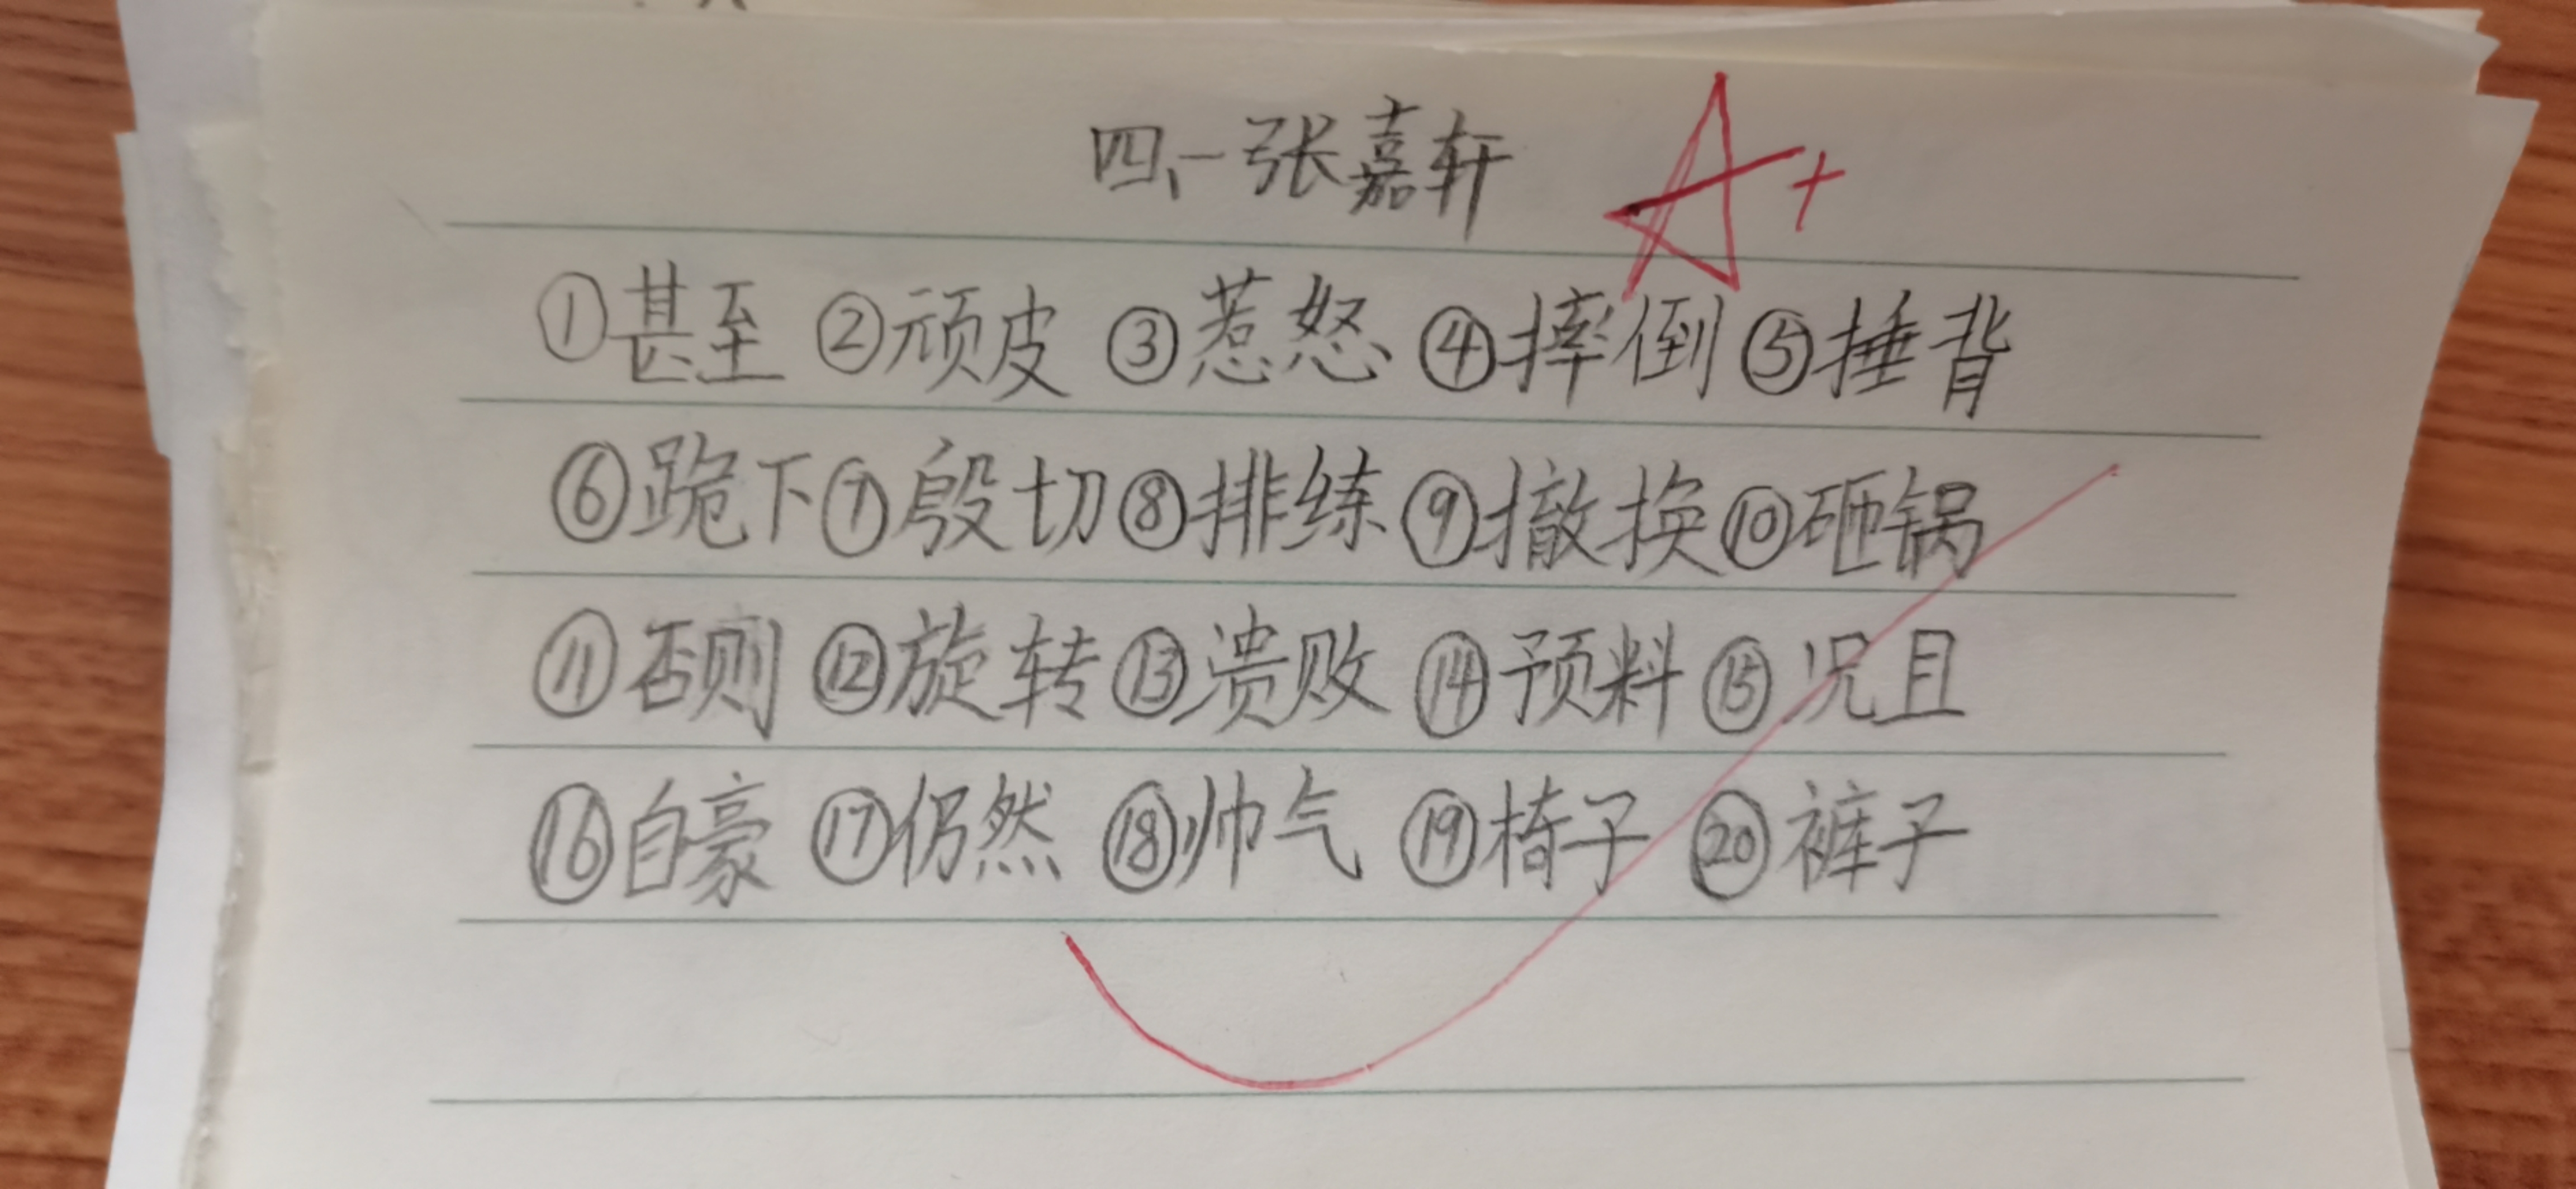 四、一张嘉轩 A+
①甚至 ②顽皮 ③惹怒 ④摔倒 ⑤捶背
⑥跪下 ⑦殷切 ⑧排练 ⑨撤换 ⑩砸锅
⑪否则 ⑫旋转 ⑬溃败 ⑭预料 ⑮况且
⑯自豪 ⑰仍然 ⑱帅气 ⑲椅子 ⑳裤子